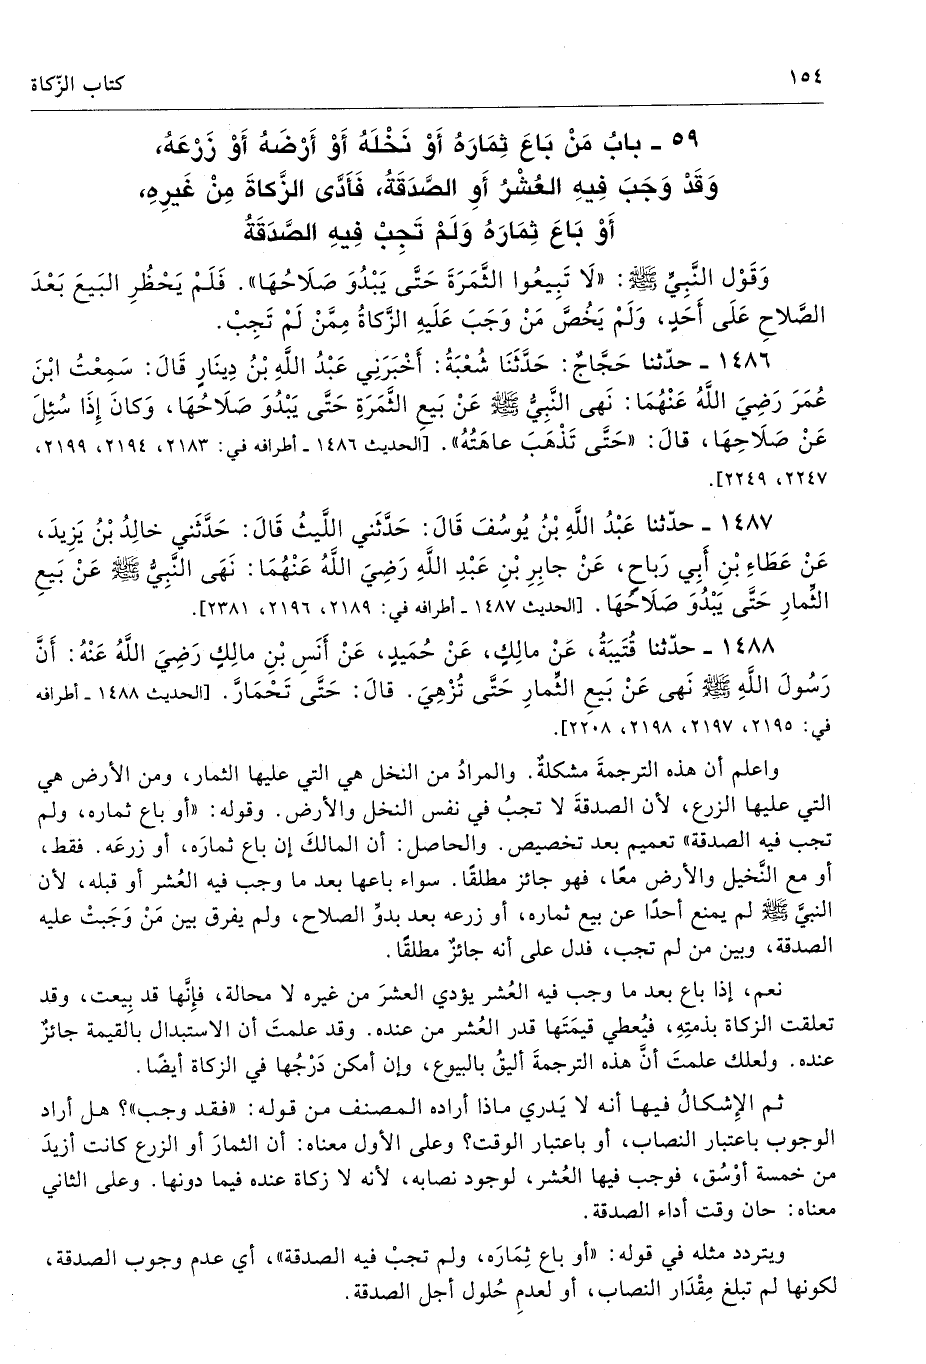 ١٥٤ كتاب الزّكاة
٥٩ - بابُ مَنْ بَاعَ ثِمَارَهُ أَوْ نَخْلَهُ أَوْ أَرْضَهُ أَوْ زَرْعَهُ،
وَقَدْ وَجَبَ فِيهِ العُشْرُ أَوِ الصَّدَقَةُ، فَأَدَّى الزَّكاةَ مِنْ غَيرِهِ،
أَوْ بَاعَ ثِمَارَهُ وَلَمْ تَجِبْ فِيهِ الصَّدَقَةُ
وَقَوْل النَّبِيِّ ﷺ: «لَا تَبِيعُوا الثَّمَرَةَ حَتَّى يَبْدُوَ صَلَاحُهَا». فَلَمْ يَحْظُرِ البَيعَ بَعْدَ
الصَّلَاحِ عَلَى أَحَدٍ، وَلَمْ يَخُصَّ مَنْ وَجَبَ عَلَيهِ الزَّكاةُ مِمَّنْ لَمْ تَجِبْ.
١٤٨٦ - حدّثنا حَجَّاجٌ: حَدَّثَنَا شُعْبَةُ: أَخْبَرَنِي عَبْدُ اللَّهِ بْنُ دِينَارٍ قَالَ: سَمِعْتُ ابْنَ
عُمَرَ رَضِيَ اللَّهُ عَنْهُمَا: نَهى النَّبِيُّ ﷺ عَنْ بَيعِ الثَّمَرَةِ حَتَّى يَبْدُوَ صَلَاحُهَا، وَكانَ إِذَا سُئِلَ
عَنْ صَلَاحِهَا، قالَ: «حَتَّى تَذْهَبَ عاهَتُهُ». [الحديث ١٤٨٦ - أطرافه في: ٢١٨٣، ٢١٩٤، ٢١٩٩،
٢٢٤٧، ٢٢٤٩].
١٤٨٧ - حدّثنا عَبْدُ اللَّهِ بْنُ يُوسُفَ قَالَ: حَدَّثَني اللَّيثُ قَالَ: حَدَّثَني خالِدُ بْنُ يَزِيدَ،
عَنْ عَطَاءِ بْنِ أَبِي رَباحٍ، عَنْ جابِرِ بْنِ عَبْدِ اللَّهِ رَضِيَ اللَّهُ عَنْهُمَا: نَهَى النَّبِيُّ ﷺ عَنْ بَيعِ
الثِّمارِ حَتَّى يَبْدُوَ صَلَاحُهَا. [الحديث ١٤٨٧ - أطرافه في: ٢١٨٩، ٢١٩٦، ٢٣٨١].
١٤٨٨ - حدّثنا قُتَيبَةُ، عَنْ مالِكٍ، عَنْ حُمَيدٍ، عَنْ أَنَسِ بْنِ مالِكٍ رَضِيَ اللَّهُ عَنْهُ: أَنَّ
رَسُولَ اللَّهِ ﷺ نَهى عَنْ بَيعِ الثِّمارِ حَتَّى تُزْهِيَ. قالَ: حَتَّى تَحْمَارَّ. [الحديث ١٤٨٨ - أطرافه
في: ٢١٩٥، ٢١٩٧، ٢١٩٨، ٢٢٠٨].
واعلم أن هذه الترجمةَ مشكلةٌ. والمرادُ من النخل هي التي عليها الثمار، ومن الأرض هي
التي عليها الزرع، لأن الصدقةَ لا تجبُ في نفس النخل والأرض. وقوله: «أو باع ثماره، ولم
تجب فيه الصدقة» تعميم بعد تخصيص. والحاصل: أن المالكَ إن باع ثمارَه، أو زرعَه. فقط،
أو مع النَّخيل والأرض معًا، فهو جائز مطلقًا. سواء باعها بعد ما وجب فيه العُشر أو قبله، لأن
النبيَّ ﷺ لم يمنع أحدًا عن بيع ثماره، أو زرعه بعد بدوِّ الصلاح، ولم يفرق بين مَنْ وَجَبتْ عليه
الصدقة، وبين من لم تجب، فدل على أنه جائزٌ مطلقًا.
نعم، إذا باع بعد ما وجب فيه العُشر يؤدي العشرَ من غيره لا محالة، فإِنَّها قد بِيعت، وقد
تعلقت الزكاة بذمتِهِ، فيُعطي قيمَتَها قدر العُشر من عنده. وقد علمتَ أن الاستبدال بالقيمة جائزٌ
عنده. ولعلك علمتَ أنَّ هذه الترجمةَ أليقُ بالبيوع، وإن أمكن دَرْجُها في الزكاة أيضًا.
ثم الإِشكالُ فيها أنه لا يَدري ماذا أراده المصنف من قوله: «فقد وجب»؟ هل أراد
الوجوب باعتبار النصاب، أو باعتبار الوقت؟ وعلى الأول معناه: أن الثمارَ أو الزرع كانت أزيدَ
من خمسة أوْسُق، فوجب فيها العُشر، لوجود نصابه، لأنه لا زكاة عنده فيما دونها. وعلى الثاني
معناه: حان وقت أداء الصدقة.
ويتردد مثله في قوله: «أو باع ثِمَارَه، ولم تجبْ فيه الصدقة»، أي عدم وجوب الصدقة،
لكونها لم تبلغ مِقْدَار النصاب، أو لعدمِ حُلول أجل الصدقة.